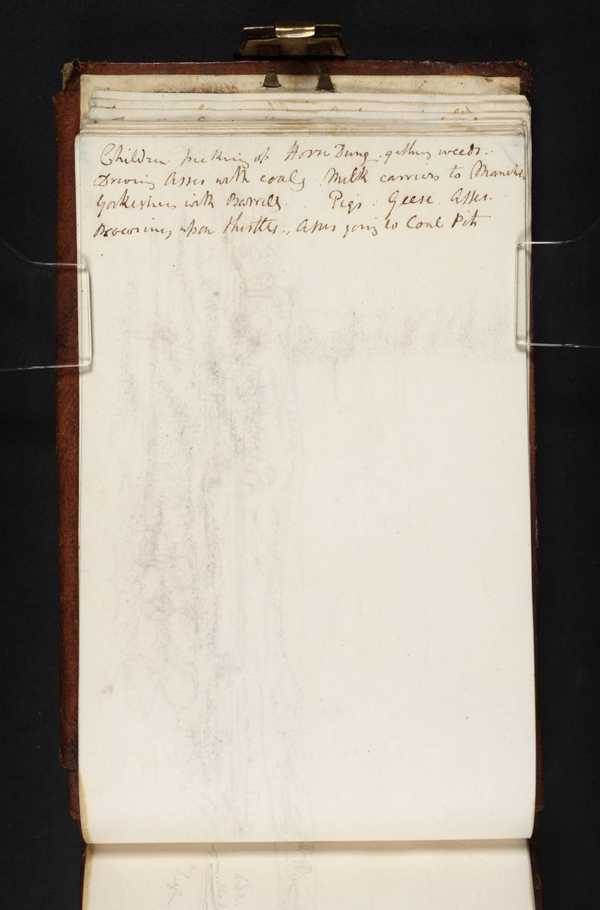 Children picking up Horse Dung. gathing weeds..
Driving Asses with coals Milk carriers to Manche
Yorkeshire with Barrells. Pigs. Geese. Asses.
Browsing upon thistles., Asses going to Coal Pits